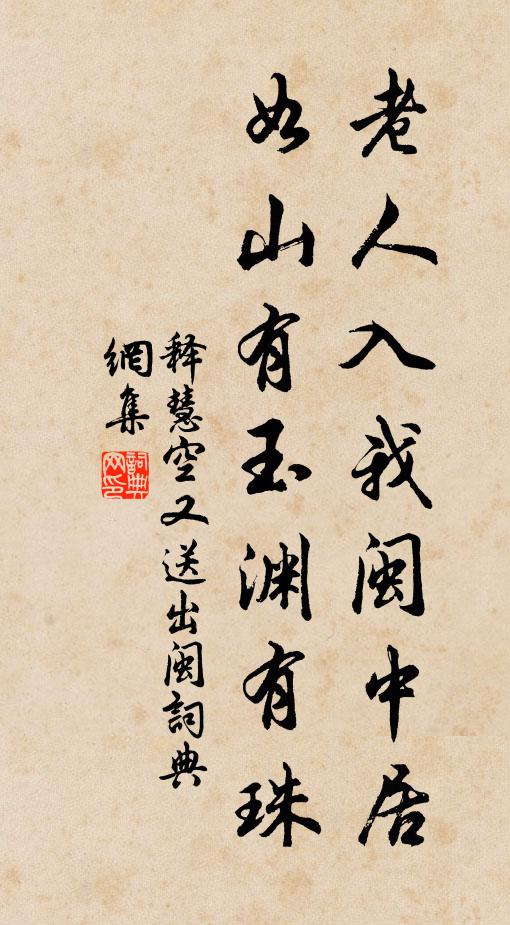 老人入我閩中居
如山有玉淵有珠
释慧空又送出閩詞典
網集
詞典网印